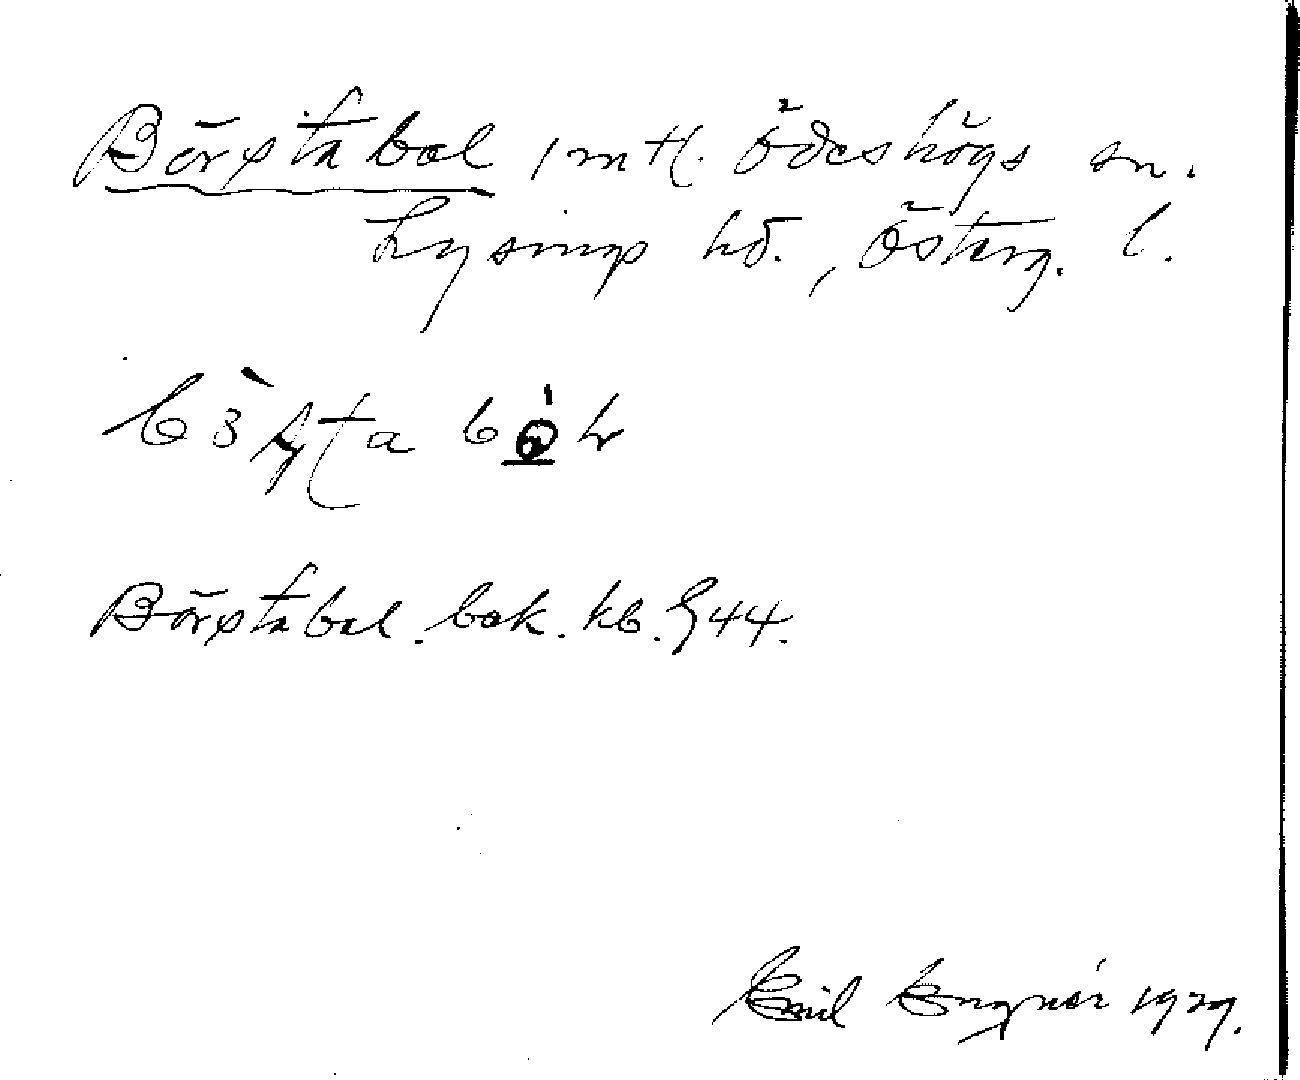 Börxtabol 1 mtl. Ödeshögs sn.
Lysings hd., Österg. l.
Börxtabol. bok. kb. § 44.
Emil Engnér 1929.